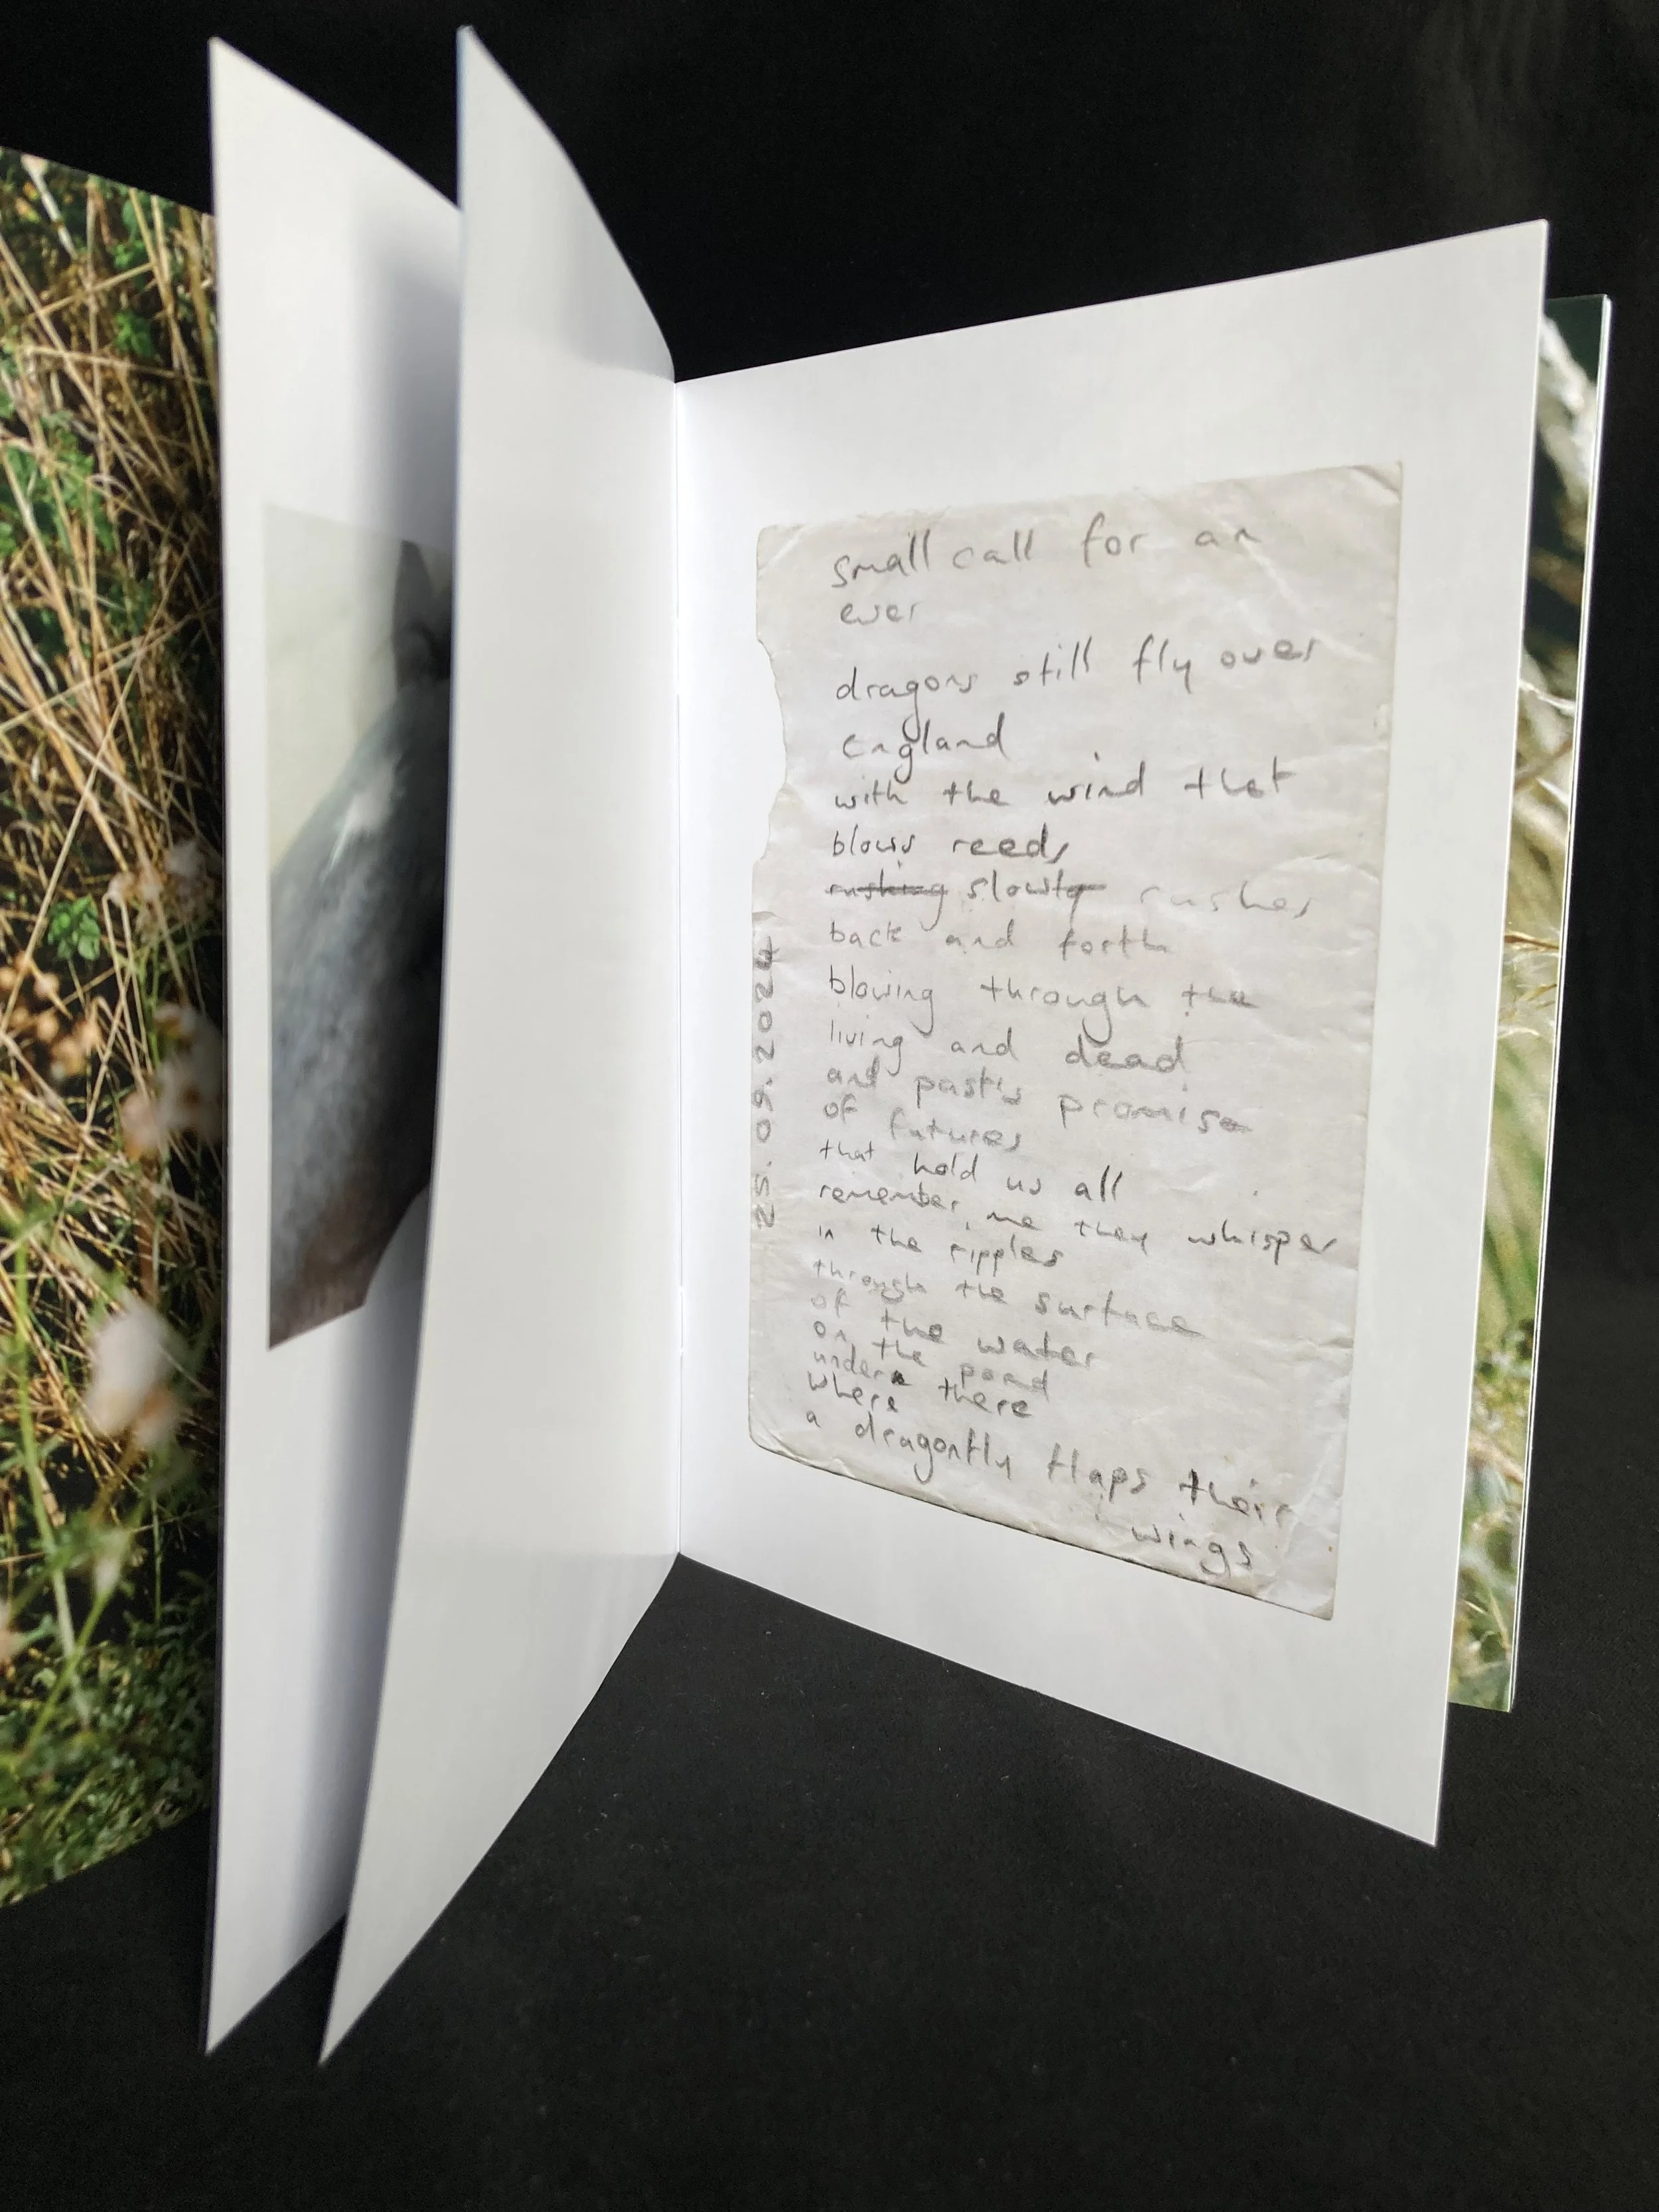 small call for an
ever
dragons still fly over
england
with the wind that
blows reeds
rushing slowly rushes
back and forth
blowing through the
living and dead
and past's promise
of futures
that hold us all
remember me they whisper
in the ripples
through the surface
of the water
on the pond
under
where there
a dragonfly flaps their
wings
25.09.2024